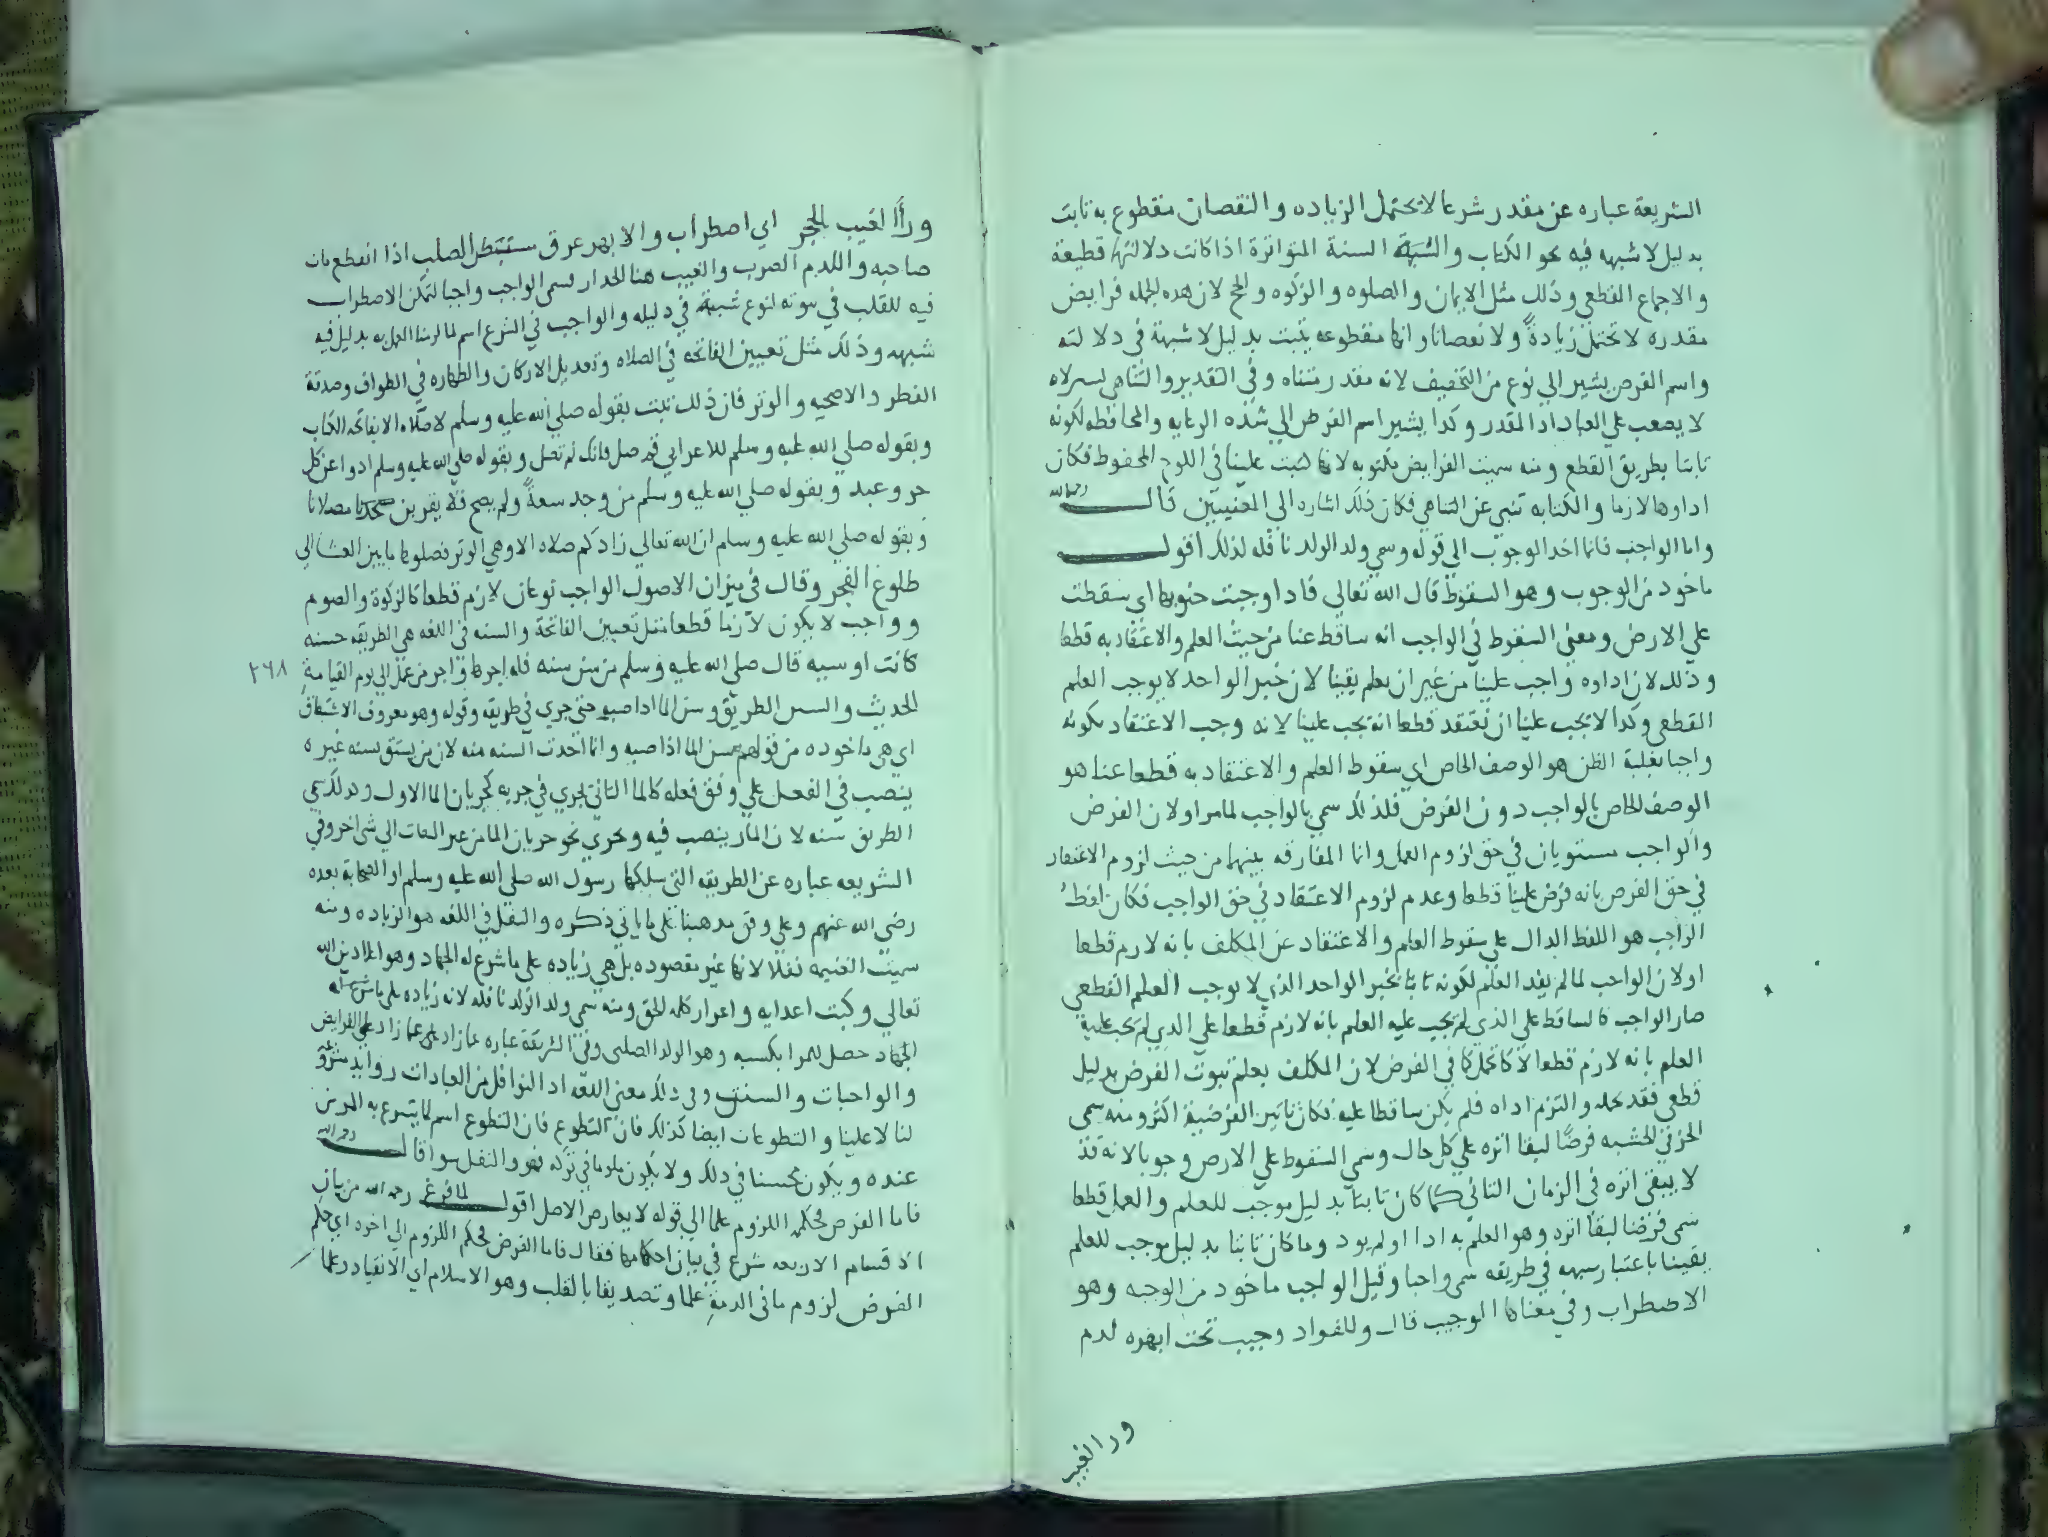 الشريعة عباره عن مقدر شرعا لا يحتمل الزياده والنقصان مقطوع به ثابت
بدليل لا شبهه فيه نحو الكتاب والسنة المتواترة اذا كانت دلالتها قطيعة
والاجماع القطعي وذلك مثل الايمان والصلوه والزكوه والحج لان هذه الجمله فرايض
مقدره لا تحتمل زيادة ولا نقصانا وانها مقطوعه يثبت بدليل لا شبهة في دلالته
واسم الفرض يشير الي نوع من التخفيف لانه مقدر متناه وفي التقدير والتناهي يسر لانه
لا يصعب علي العباد اداء المقدر وكذا يشير اسم الفرض الي شده الرعايه والمحافظه لكونه
ثابتا بطريق القطع ومنه سميت الفرايض مكتوبه لانها كتبت علينا في اللوح المحفوظ فكان
اداوها لازما والكتابه تنبي عن التناهي فكان ذلك اشاره الي المعنيين قال رحمه الله
واما الواجب فانما اخذ الوجوب الي قوله وسمي ولد الولد نافله لذلك اقول
ماخوذ من الوجوب وهو السقوط قال الله تعالي فاذا وجبت جنوبها اي سقطت
علي الارض ومعني السقوط في الواجب انه ساقط عنا من حيث العلم والاعتقاد به قطعا
وذلك لان اداوه واجب علينا من غير ان يعلم يقينا لان خبر الواحد لا يوجب العلم
القطعي وكذا لا يجب علينا ان نعتقد قطعا انه يجب علينا لانه وجب الاعتقاد بكونه
واجبا بغلبة الظن هو الوصف الخاص اي سقوط العلم والاعتقاد به قطعا عنا هو
الوصف الخاص بالواجب دون الفرض فلذلك سمي بالواجب لما مر اولان الفرض
والواجب مستويان في حق لزوم العمل وانما المفارقه بينهما من حيث لزوم الاعتقاد
في حق الفرض بانه فرض علينا قطعا وعدم لزوم الاعتقاد في حق الواجب فكان لفظ
الواجب هو اللفظ الدال علي سقوط العلم والاعتقاد عن المكلف بانه لازم قطعا
اولان الواجب لما لم يفد العلم لكونه ثابتا بخبر الواحد الذي لا يوجب العلم القطعي
صار الواجب كالساقط علي الذي لم يجب عليه العلم بانه لازم قطعا علي الذي لم يجب عليه
العلم بانه لازم قطعا لا كما تحمل كما في الفرض لان المكلف يعلم ثبوت الفرض بدليل
قطعي فقد تحمله والتزم اداه فلم يكن ساقطا عليه فكان تاثير الفرضية اكثر ومنه سمي
الحز في الخشبه فرضا لبقا اثره علي كل حال وسمي السقوط علي الارض وجوبا لانه قد
لا يبقي اثره في الزمان الثاني كما كان ثابتا بدليل موجب للعلم والعمل قطعا
سمي فرضا لبقا اثره وهو العلم به ادا او لم يود وما كان ثابتا بدليل موجب للعلم
يقينا باعتبار شبهه في طريقه سمي واجبا وقيل الواجب ماخوذ من الوجبه وهو
الاضطراب وفي معناها الوجيب قال وللفواد وجيب تحت ابهره لدم
ورا الغيب
ورا الغيب بالحجر اي اضطراب والابهر عرق مستبطن الصلب اذا انقطع مات
صاحبه واللدم الضرب والغيب هنا الجدار فسمي الواجب واجبا لتمكن الاضطراب
فيه للقلب في ثبوته لنوع شبهة في دليله والواجب في الشرع اسم لما لزمنا العمل به بدليل فيه
شبهه وذلك مثل تعيين الفاتحه في الصلاه وتعديل الاركان والطهاره في الطواف وصدقة
الفطر والاضحيه والوتر فان ذلك ثبت بقوله صلي الله عليه وسلم لا صلاه الا بفاتحه الكتاب
وبقوله صلي الله عليه وسلم للاعرابي قم صل فانك لم تصل وبقوله صلي الله عليه وسلم ادوا عن كل
حر وعبد وبقوله صلي الله عليه وسلم من وجد سعة ولم يضح فلا يقربن مصلانا
وبقوله صلي الله عليه وسلم ان الله تعالي زادكم صلاه الا وهي الوتر فصلوها ما بين العشا الي
طلوع الفجر وقال في ميزان الاصول الواجب نوعان لازم قطعا كالزكوة والصوم
وواجب لا يكون لازما قطعا مثل تعيين الفاتحة والسنه في اللغه هي الطريقه حسنه
كانت او سيه قال صلي الله عليه وسلم من سن سنه فله اجرها واجر من عمل الي يوم القيامة
٢٦٨
الحديث والسنن الطريق وسن الما اذا صبه حتي جري في طريقه وقوله وهو معروف الاشتقاق
اي هي ماخوذه من قولهم سن الما اذا صبه وانما اخذت السنه منه لان من يستن بسنه غيره
ينصب في الفعل علي وفق فعله كالما الثاني يجري في جريه كجريان الما الاول وكذلك سمي
الطريق سنه لان المار ينصب فيه ويجري نحو جريان الما من غير التفات الي شي اخر وفي
الشريعه عباره عن الطريقه التي سلكها رسول الله صلي الله عليه وسلم او الصحابة بعده
رضي الله عنهم وعلي وفق مذهبنا علي ما ياتي ذكره والنفل في اللغه هو الزياده ومنه
سميت الغنيمه نفلا لانها غير مقصوده بل هي زياده علي ما شرع له الجهاد وهو اعلا دين الله
تعالي وكبت اعدايه واعزاز كلمه الحق ومنه سمي ولد الولد نافله لانه زياده علي ما شرع له
الجهاد حصل للمرا بكسبه وهو الولد الصلبي وفي الشريعة عباره عما زاد علي عما زاد علي الفرايض
والواجبات والسنن وفي ذلك معني اللغه اذ النوافل من العبادات زوايد مشروعه
لنا لا علينا والتطوعات ايضا كذلك فان التطوع فان التطوع اسم لما يتبرع به المرء من
عنده ويكون محسنا في ذلك ولا يكون ملوما في تركه فهو والنفل سوا قال رحمه الله
فاما الفرض فحكمه اللزوم علما الي قوله لا يعارض الاصل اقول لما فرغ رحمه الله من بيان
الاقسام الاربعه شرع في بيان احكامها فقال فاما الفرض فحكمه اللزوم الي اخره اي حكم
الفرض لزوم ما في الذمة علما وتصديقا بالقلب وهو الاسلام اي الانقياد وعملا